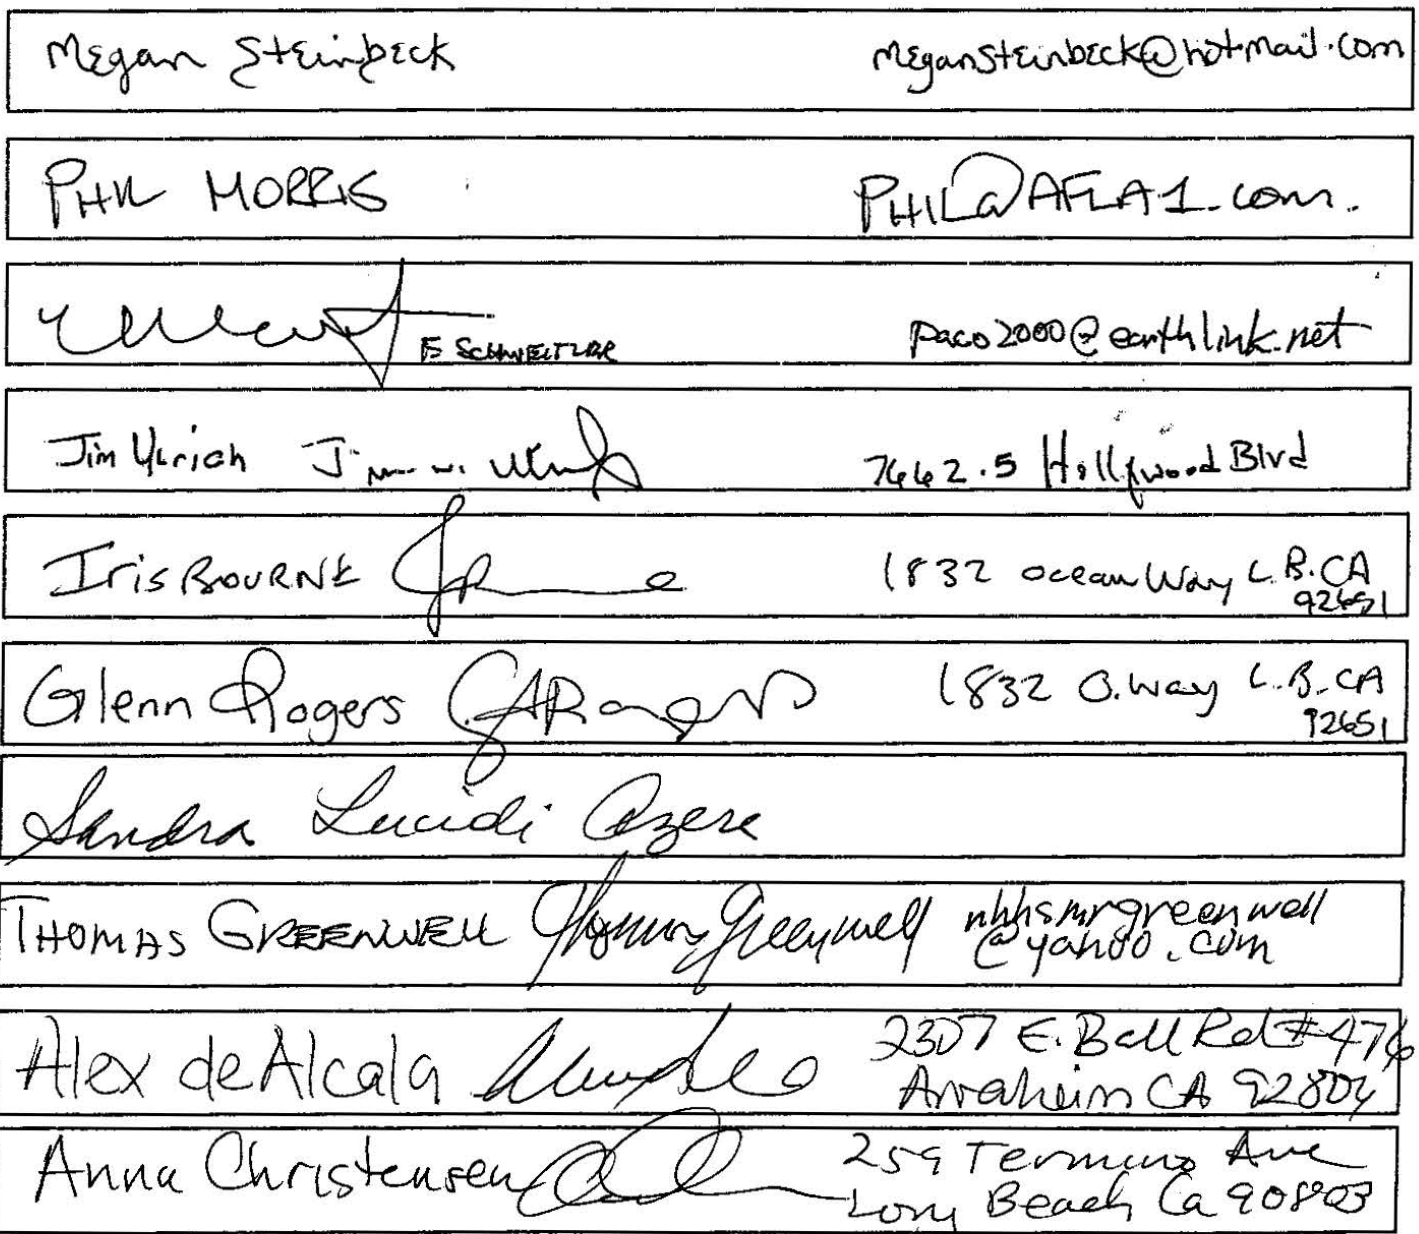 Megan Steinbeck megansteinbeck@hotmail.com
PHIL MORRIS PHIL@AFLA1.com.
F SCHWEITZER paco2000@earthlink.net
Jim Ulrich 7662.5 Hollywood Blvd
Iris BOURNE 1832 Ocean Way L.B. CA
92651
Glenn Rogers 1832 O. Way L.B. CA
92651
Sandra Lucidi
THOMAS GREENWELL Thomas Greenwell nhhsmrgreenwell
@yahoo.com
Alex de Alcala 2307 E. Ball Rd #476
Anaheim CA 92804
Anna Christensen 259 Termino Ave
Long Beach Ca